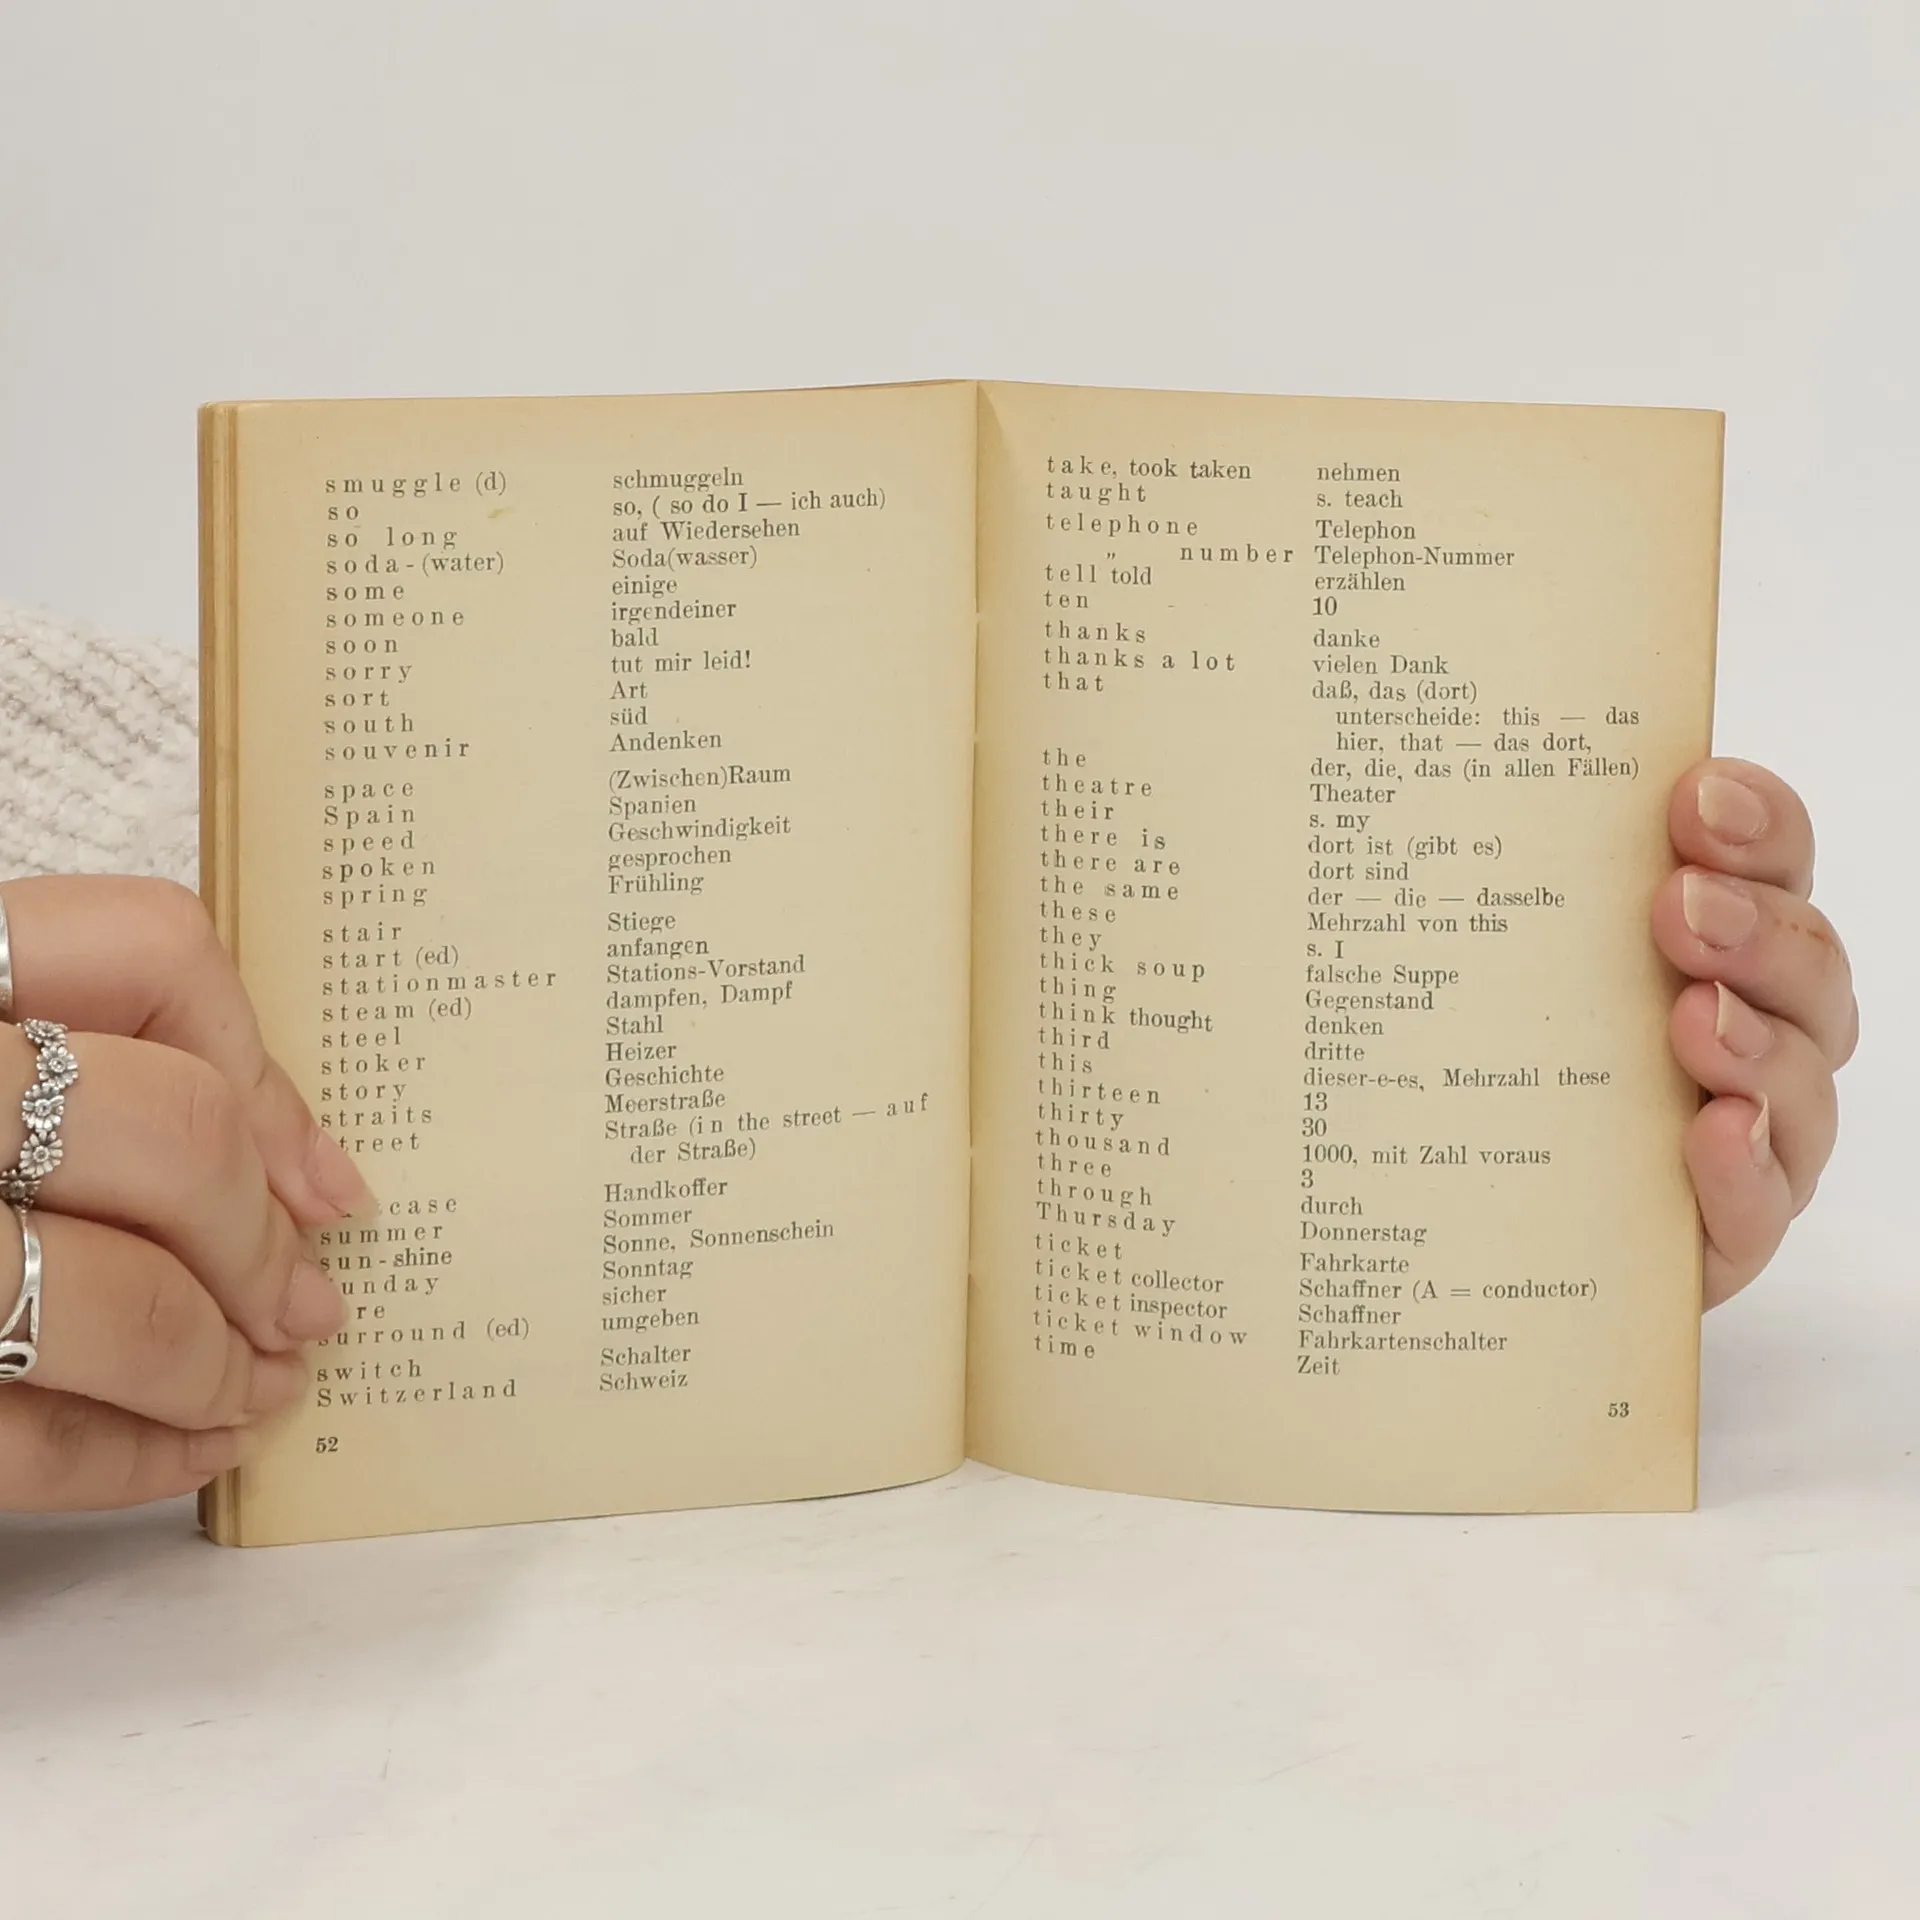 smuggle (d) schmuggeln
so so, ( so do I — ich auch)
so long auf Wiedersehen
soda-(water) Soda(wasser)
some einige
someone irgendeiner
soon bald
sorry tut mir leid!
sort Art
south süd
souvenir Andenken
space (Zwischen)Raum
Spain Spanien
speed Geschwindigkeit
spoken gesprochen
spring Frühling
stair Stiege
start (ed) anfangen
stationmaster Stations-Vorstand
steam (ed) dampfen, Dampf
steel Stahl
stoker Heizer
story Geschichte
straits Meerstraße
treet Straße (in the street — auf
der Straße)
case Handkoffer
summer Sommer
sun-shine Sonne, Sonnenschein
unday Sonntag
re sicher
surround (ed) umgeben
switch Schalter
Switzerland Schweiz
52
take, took taken nehmen
taught s. teach
telephone Telephon
„ number Telephon-Nummer
tell told erzählen
ten 10
thanks danke
thanks a lot vielen Dank
that daß, das (dort)
unterscheide: this — das
hier, that — das dort,
the der, die, das (in allen Fällen)
theatre Theater
their s. my
there is dort ist (gibt es)
there are dort sind
the same der — die — dasselbe
these Mehrzahl von this
they s. I
thick soup falsche Suppe
thing Gegenstand
think thought denken
third dritte
this dieser-e-es, Mehrzahl these
thirteen 13
thirty 30
thousand 1000, mit Zahl voraus
three 3
through durch
Thursday Donnerstag
ticket Fahrkarte
ticket collector Schaffner (A = conductor)
ticket inspector Schaffner
ticket window Fahrkartenschalter
time Zeit
53